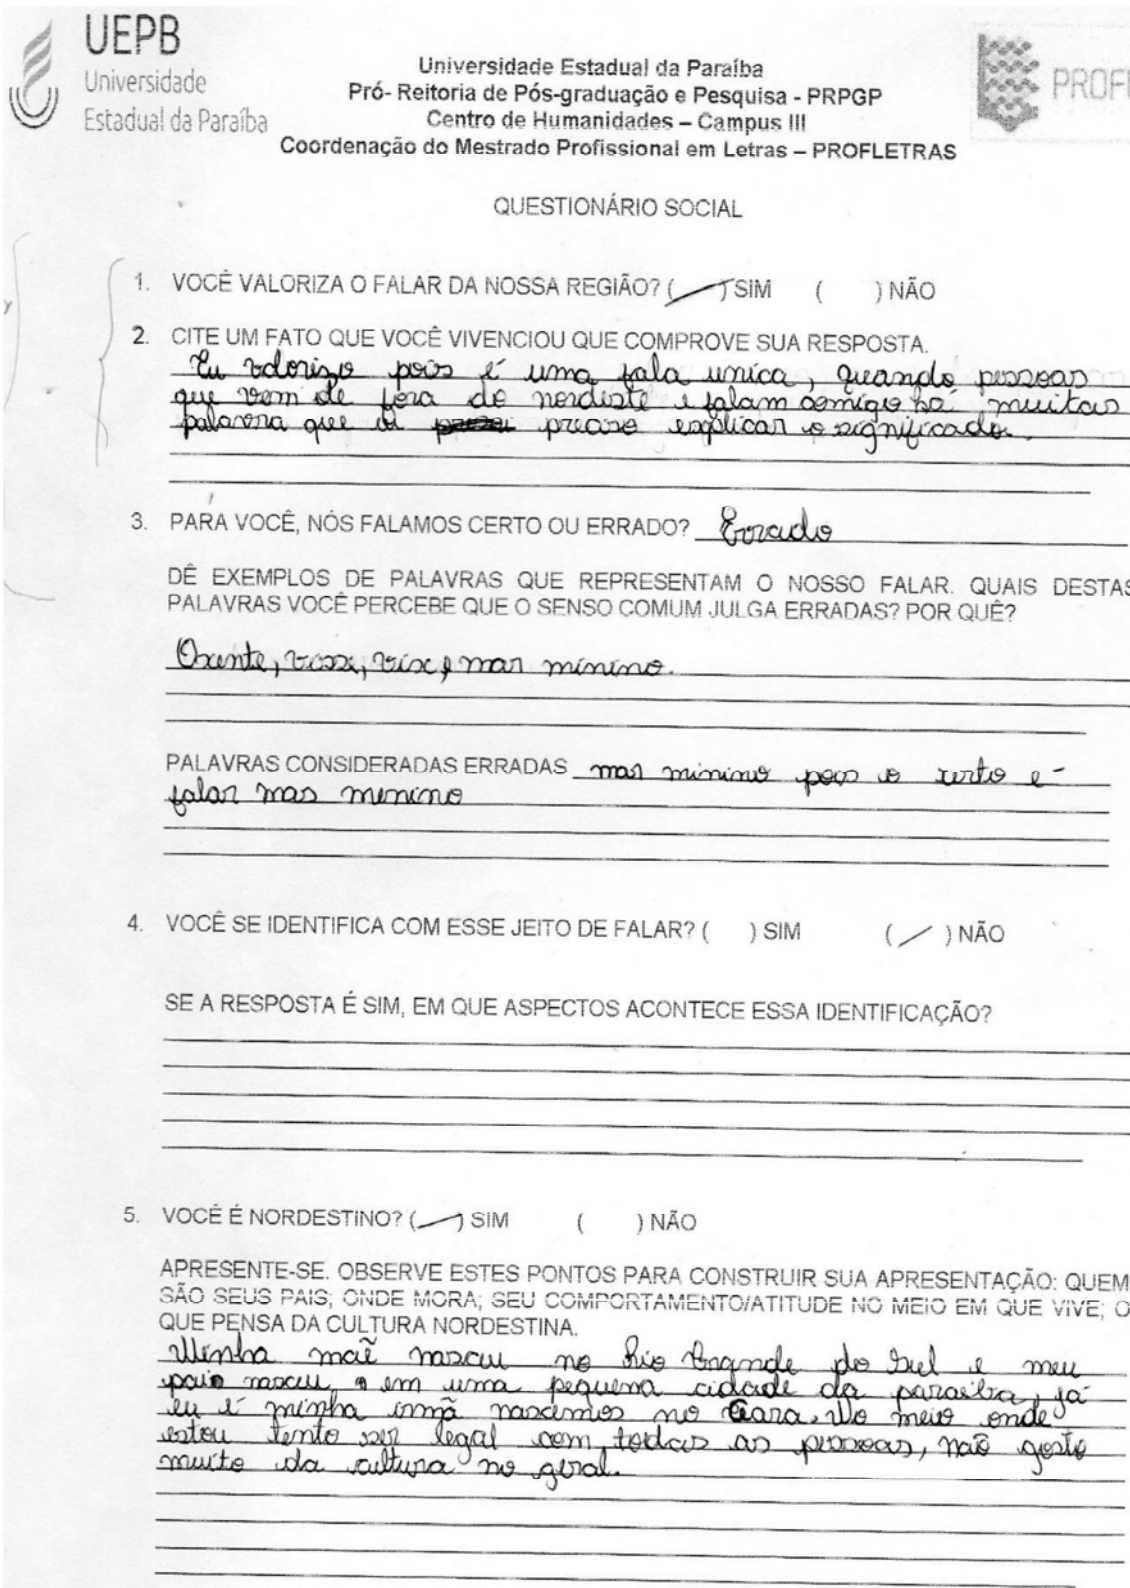 UEPB
Universidade
Estadual da Paraíba
Universidade Estadual da Paraíba
Pró- Reitoria de Pós-graduação e Pesquisa - PRPGP
Centro de Humanidades – Campus III
Coordenação do Mestrado Profissional em Letras – PROFLETRAS
PROFL
QUESTIONÁRIO SOCIAL
1. VOCÊ VALORIZA O FALAR DA NOSSA REGIÃO? ( / ) SIM ( ) NÃO
2. CITE UM FATO QUE VOCÊ VIVENCIOU QUE COMPROVE SUA RESPOSTA.
Eu valorizo pois é uma fala unica, quando pessoas
que vem de fora do nordeste e falam comigo há muitas
palavra que preciso explicar o significado.
3. PARA VOCÊ, NÓS FALAMOS CERTO OU ERRADO? Errado
DÊ EXEMPLOS DE PALAVRAS QUE REPRESENTAM O NOSSO FALAR. QUAIS DESTAS
PALAVRAS VOCÊ PERCEBE QUE O SENSO COMUM JULGA ERRADAS? POR QUÊ?
Oxente, vixe, mar minino.
PALAVRAS CONSIDERADAS ERRADAS mar minino pois o certo é
falar mas menino
4. VOCÊ SE IDENTIFICA COM ESSE JEITO DE FALAR? ( ) SIM ( / ) NÃO
SE A RESPOSTA É SIM, EM QUE ASPECTOS ACONTECE ESSA IDENTIFICAÇÃO?
5. VOCÊ É NORDESTINO? ( / ) SIM ( ) NÃO
APRESENTE-SE. OBSERVE ESTES PONTOS PARA CONSTRUIR SUA APRESENTAÇÃO: QUEM
SÃO SEUS PAIS; ONDE MORA; SEU COMPORTAMENTO/ATITUDE NO MEIO EM QUE VIVE; O
QUE PENSA DA CULTURA NORDESTINA.
Minha mãe nasceu no Rio Grande do Sul e meu
pais nasceu em uma pequena cidade da paraiba, já
eu é minha irmã nascemos no Ceara. No meio onde
estou tento ser legal com todas as pessoas, não gosto
muito da cultura no geral.